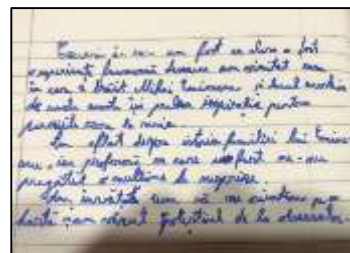 în care am fost cu clasa a fost
o experiență frumoasă deoarece am vizitat casa
în care a trăit Mihai Eminescu și lacul
de unde acesta își prelua inspirația pentru
poeziile care le scria.
Am aflat despre istoria familiei lui Emine
scu, iar profesorii cu care am fost ne-au
pregătit o mulțime de surprize.
Am învățat cum să ne orientăm pe o
hartă și am văzut de la observator.